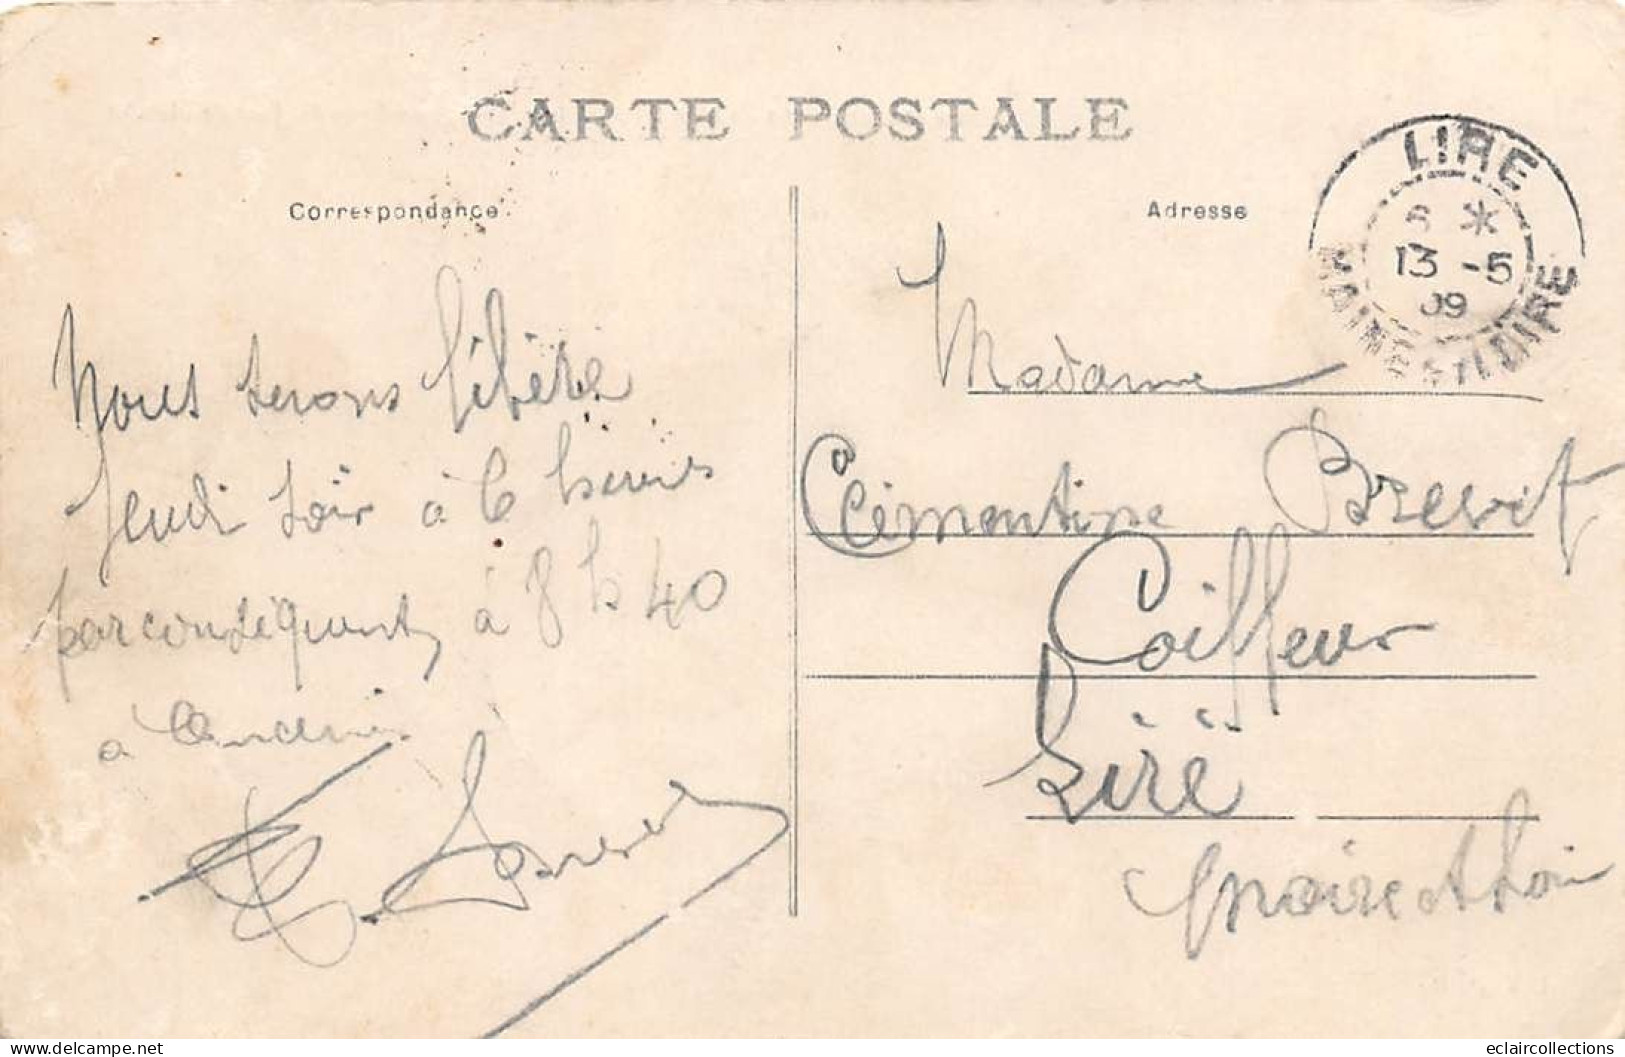 CARTE POSTALE
Correspondance
Adresse
LIRE
8 *
13 -5
09
MAINE ET LOIRE
Nous serons libéré
Jeudi soir à 6 heures
par conséquent, à 8 h 40
à
Madame
Clémentine Brevet
Coiffeur
Liré
Maine et Loir
delcampe.net
eclaircollections